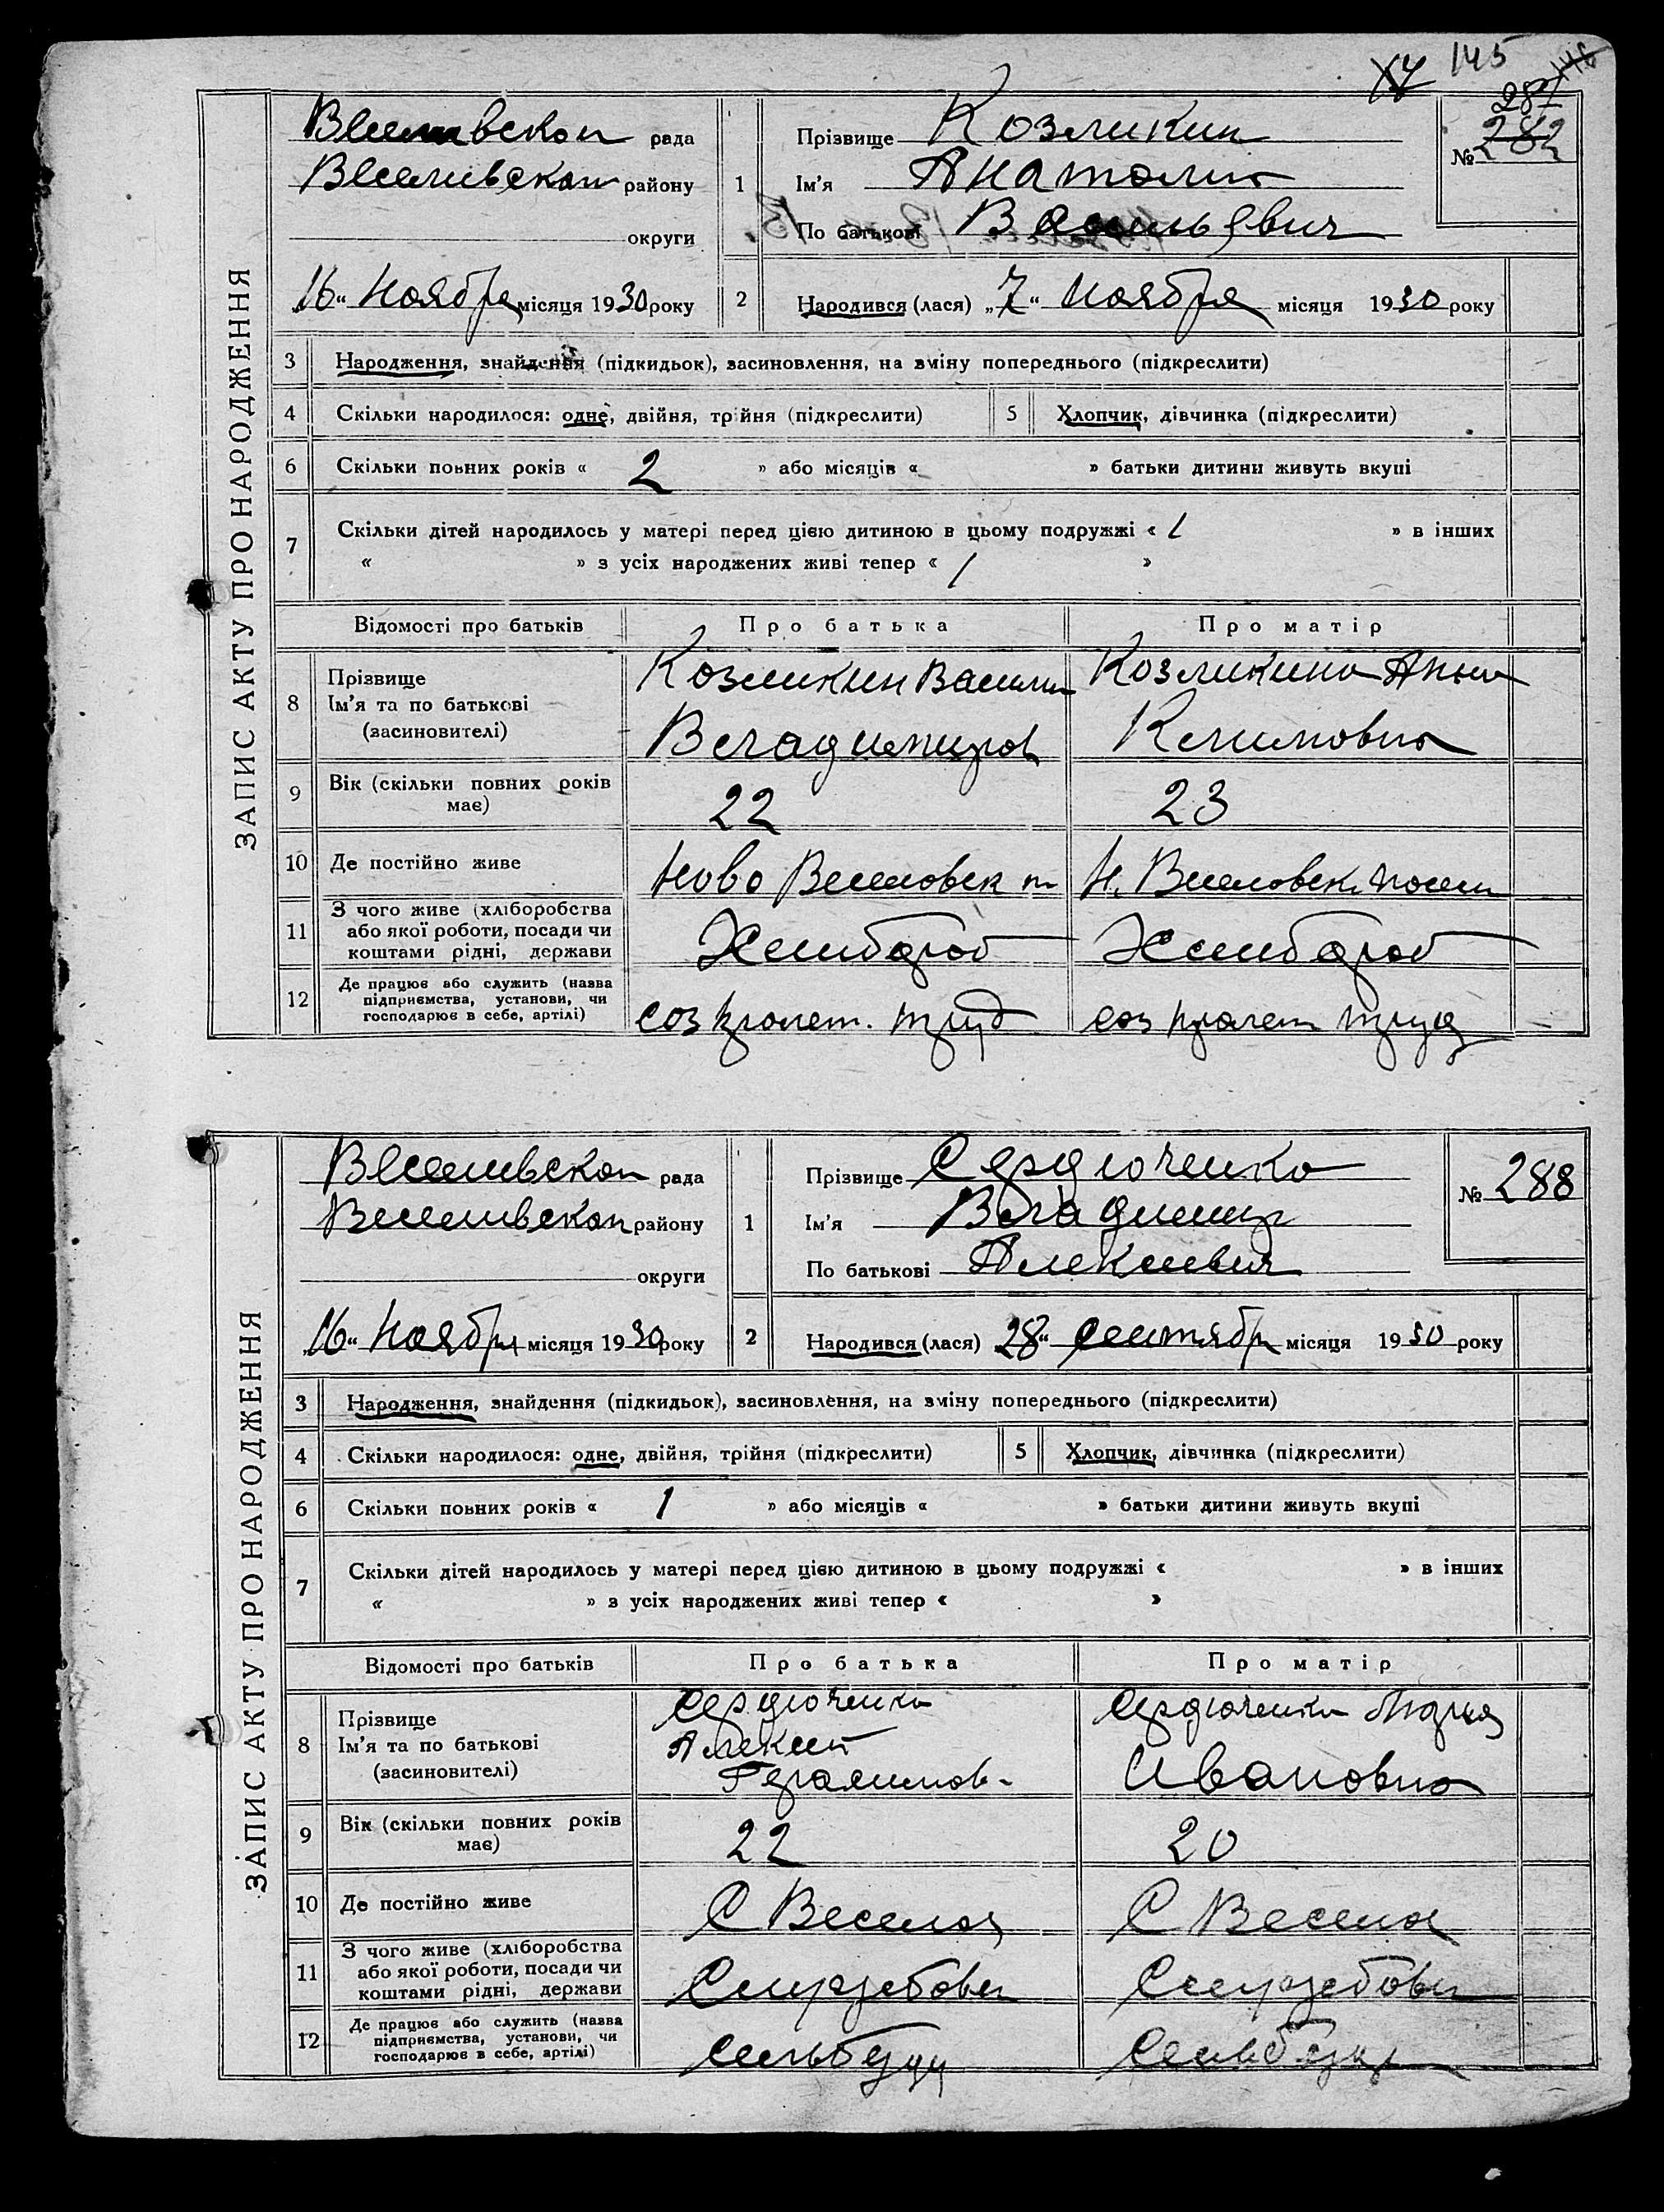 145
287
282
ЗАПИС АКТУ ПРО НАРОДЖЕННЯ
рада
району
округи
16 Ноября місяця 1930 року
1
Прізвище Козликин
Ім'я Анатолий
По батькові Васильевич
№
2
Народився (лася) „7“ Ноября місяця 1930 року
3 Народження, знайдення (підкидьок), засиновлення, на зміну попереднього (підкреслити)
4 Скільки народилося: одне, двійня, трійня (підкреслити) 5 Хлопчик, дівчинка (підкреслити)
6 Скільки повних років « 2 » або місяців « » батьки дитини живуть вкупі
7 Скільки дітей народилось у матері перед цією дитиною в цьому подружжі « 1 » в інших
« » з усіх народжених живі тепер « 1 »
Відомості про батьків Про батька Про матір
8 Прізвище
Ім'я та по батькові
(засиновителі)
Козликин Василий
Владимиров
Козликина Анна
Климовна
9 Вік (скільки повних років має) 22 23
10 Де постійно живе Ново Веселовск п Н. Веселовск. посел
11 З чого живе (хліборобства
або якої роботи, посади чи
коштами рідні, держави
Хлибороб Хлибороб
12 Де працює або служить (назва
підприємства, установи, чи
господарює в себе, артілі)
соз пролет. труд соз пролет труд
ЗАПИС АКТУ ПРО НАРОДЖЕННЯ
рада
району
округи
16 Ноября місяця 1930 року
1
Прізвище Сердюченко
Ім'я Владимир
По батькові Алексеевич
№ 288
2
Народився (лася) 28 Сентября місяця 1930 року
3 Народження, знайдення (підкидьок), засиновлення, на зміну попереднього (підкреслити)
4 Скільки народилося: одне, двійня, трійня (підкреслити) 5 Хлопчик, дівчинка (підкреслити)
6 Скільки повних років « 1 » або місяців « » батьки дитини живуть вкупі
7 Скільки дітей народилось у матері перед цією дитиною в цьому подружжі « » в інших
« » з усіх народжених живі тепер « »
Відомості про батьків Про батька Про матір
8 Прізвище
Ім'я та по батькові
(засиновителі)
Сердюченко
Алексей
Герасимов.
Сердюченко Мария
Ивановна
9 Вік (скільки повних років має) 22 20
10 Де постійно живе С Веселое С Веселое
11 З чого живе (хліборобства
або якої роботи, посади чи
коштами рідні, держави
12 Де працює або служить (назва
підприємства, установи, чи
господарює в себе, артілі)